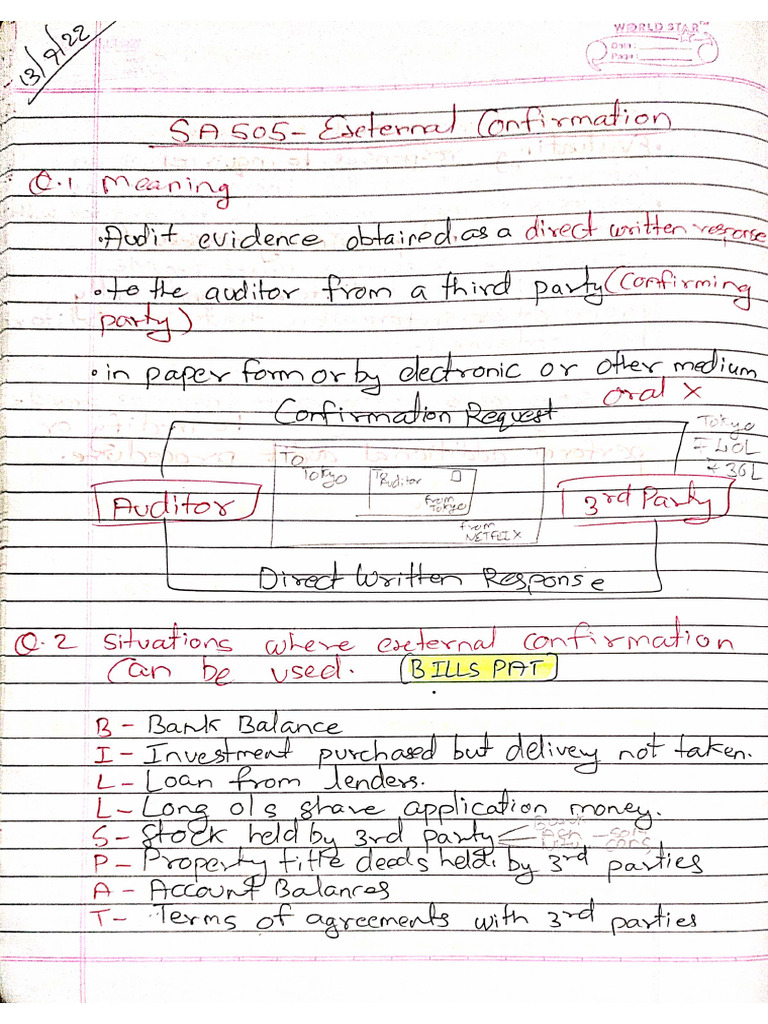 13/9/22
WORLD STAR
Date :
Page :
SA 505 - External Confirmation
Q.1 Meaning
• Audit evidence obtained as a direct written response
• to the auditor from a third party (Confirming
party)
• in paper form or by electronic or other medium
oral ×
Confirmation Request
Tokyo
= 40L
36L
To
Tokyo
To
Auditor
from
Tokyo
from
NETFLIX
Auditor
3rd Party
Direct Written Response
Q.2 Situations where external confirmation
Can be used. (BILLS PAT)
B - Bank Balance
I - Investment purchased but delivery not taken.
L - Loan from lenders.
L - Long o/s share application money.
S - Stock held by 3rd party
P - Property title deeds held by 3rd parties
A - Account Balances
T - Terms of agreements with 3rd parties